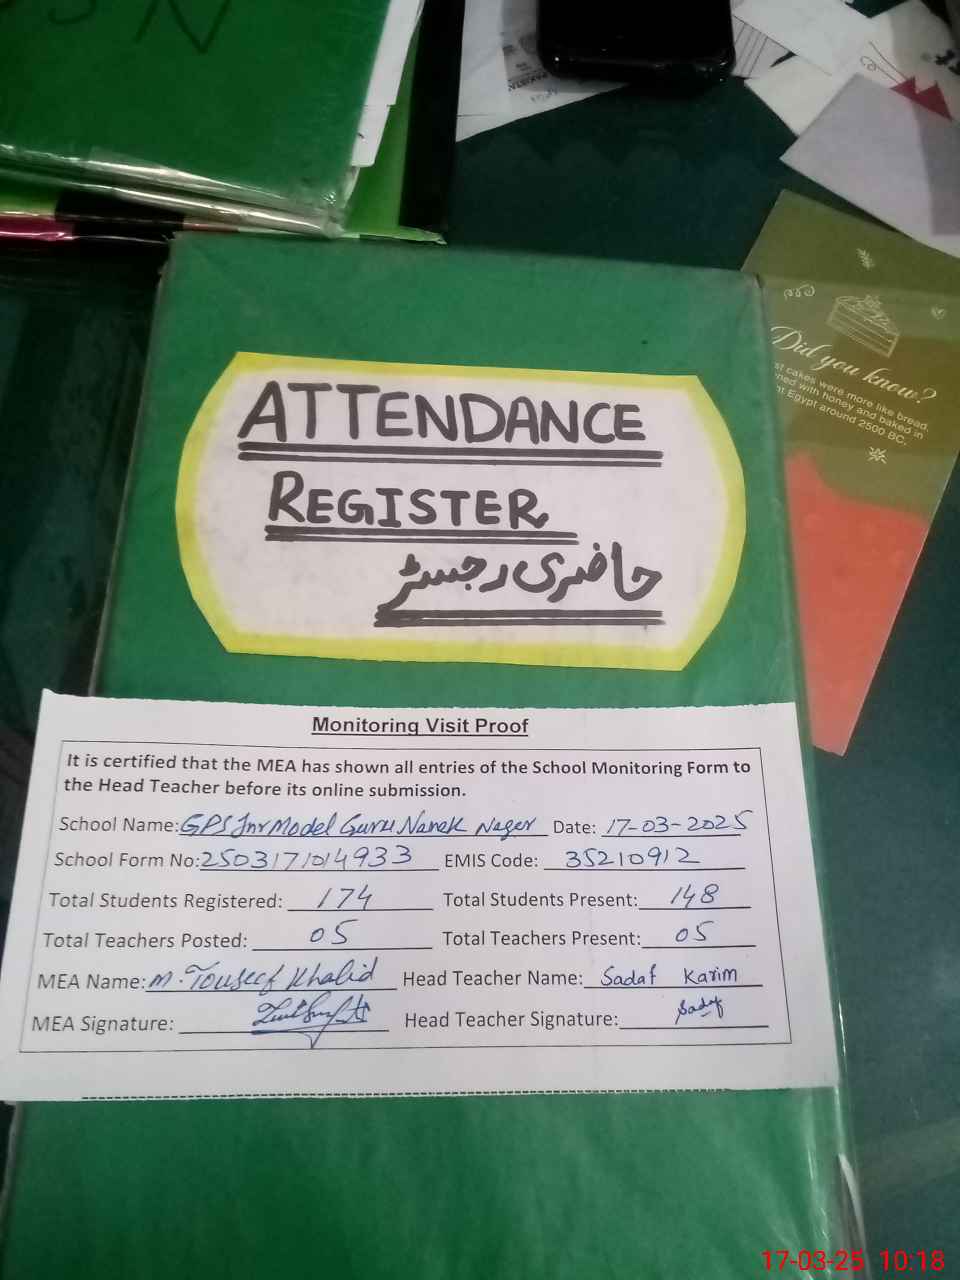 SN
PAKISTAN
ATTENDANCE
REGISTER
حاضری رجسٹر
Did you know?
st cakes were more like bread,
ned with honey and baked in
nt Egypt around 2500 BC.
Monitoring Visit Proof
It is certified that the MEA has shown all entries of the School Monitoring Form to
the Head Teacher before its online submission.
School Name: GPS Jnr Model Guru Nanak Nager Date: 17-03-2025
School Form No: 2503171014933 EMIS Code: 35210912
Total Students Registered: 174 Total Students Present: 148
Total Teachers Posted: 05 Total Teachers Present: 05
MEA Name: M. Touseef Khalid Head Teacher Name: Sadaf Karim
MEA Signature: Head Teacher Signature: Sadaf
17-03-25 10:18